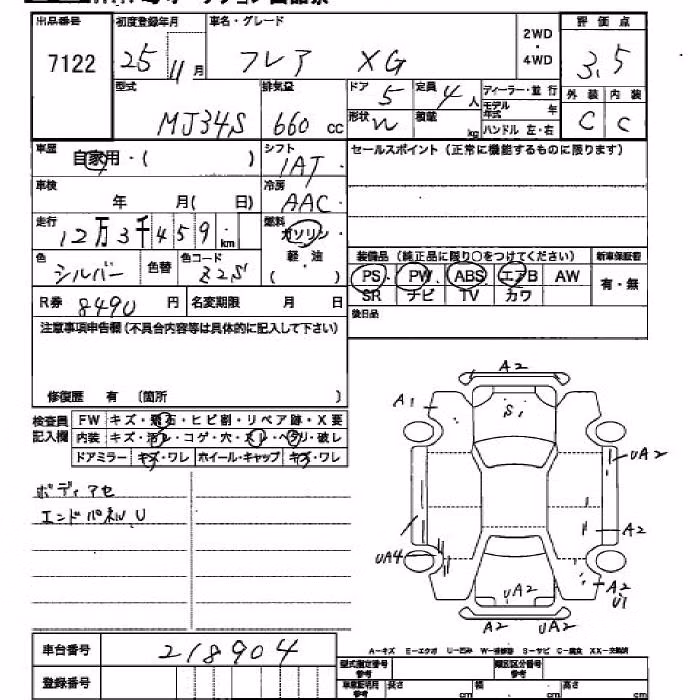 出品番号 初度登録年月 車名・グレード 2WD ・ 4WD 評価点
7122 25 11月 フレア XG 3.5
型式 排気量 ドア 5 定員 4人 ディーラー・並行 外装 内装
MJ34S 660 cc 形状 W 積載 kg モデル年式 年 C C
ハンドル 左・右
車歴 自家用・( ) シフト IAT セールスポイント(正常に機能するものに限ります)
車検 年 月( 日) 冷房 AAC
走行 12万3千459 km 燃料 ガソリン
色 シルバー 色替 色コード Z2S 軽・油 ( )
装備品(純正品に限り○をつけてください) 新車保証書
PS PW ABS エアB AW 有・無
SR ナビ TV カワ
R券 8490 円 名変期限 月 日 後日品
注意事項申告欄(不具合内容等は具体的に記入して下さい)
修復歴 有 (箇所 )
検査員 記入欄
FW キズ・飛石・ヒビ割・リペア跡・X要
内装 キズ・汚レ・コゲ・穴・スレ・ヘタリ・破レ
ドアミラー キズ・ワレ ホイール・キャップ キズ・ワレ
ボディアセ
エンドパネルU
A2
A1 S1
UA2
A2
UA4
UA2 A2
U1
A2 UA2
車台番号 218904
A−キズ E−エクボ U−凹み W−補修跡 S−サビ C−腐食 XX−交換済
登録番号
型式指定番号 参考 類別区分番号 参考
車庫証明用 参考 長さ cm 幅 cm 高さ cm